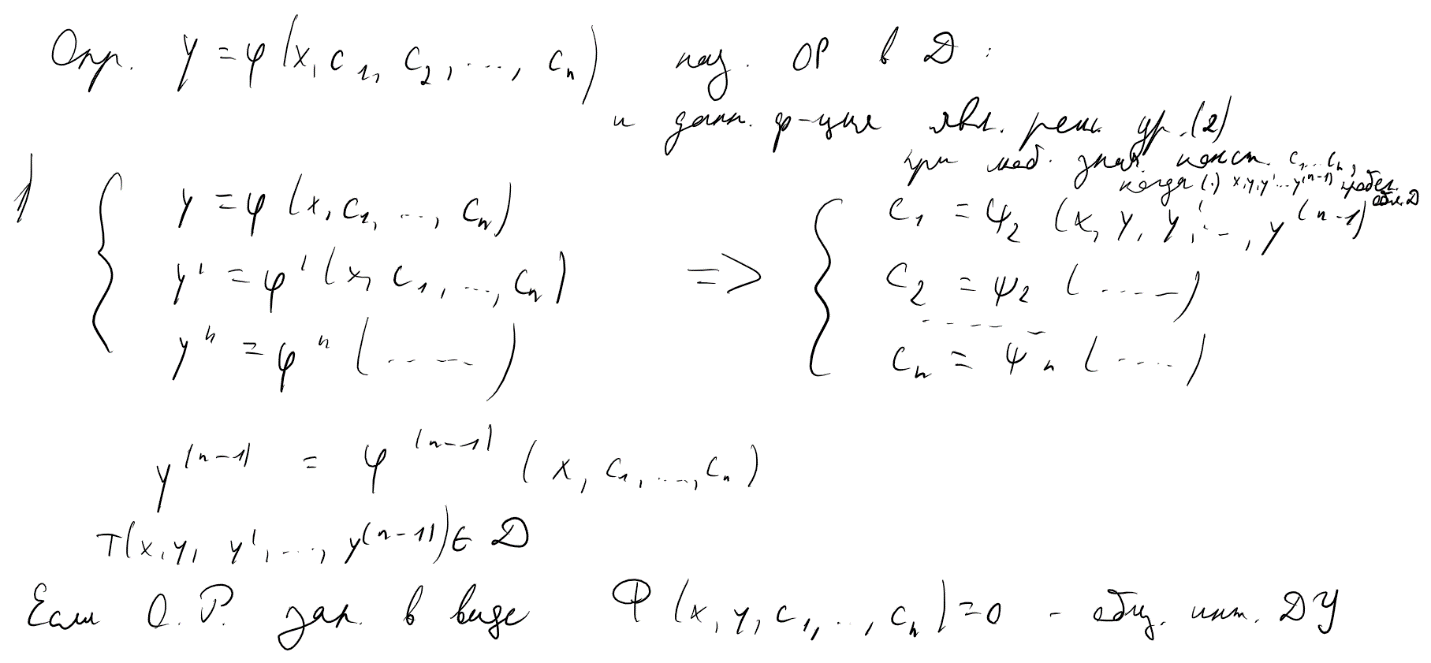 Опр. y = φ(x, c₁, c₂, ..., cₙ) наз. ОР в D :
и данн. ф-ция явл. реш. ур. (2)
при люб. знач. конст. c₁...cₙ,
когда (.) x,y,y'...y⁽ⁿ⁻¹⁾ пробег. обл. D
1) { y = φ (x, c₁, ..., cₙ)
y' = φ' (x, c₁, ..., cₙ)
yⁿ = φⁿ (......)
=> { c₁ = ψ₂ (x, y, y', ..., y⁽ⁿ⁻¹⁾
c₂ = ψ₂ (.....)
- - - - - - -
cₙ = ψₙ (.....)
y⁽ⁿ⁻¹⁾ = φ⁽ⁿ⁻¹⁾ (x, c₁, ..., cₙ)
T(x, y, y', ..., y⁽ⁿ⁻¹⁾) ∈ D
Если О.Р. зап. в виде Φ (x, y, c₁, ..., cₙ) = 0 - общ. инт. ДУ